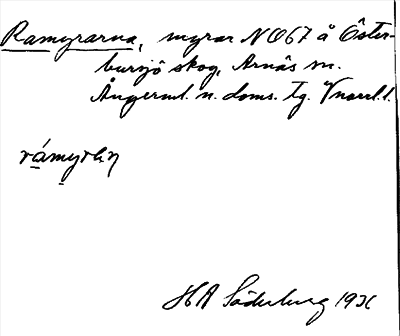 Ramyrarna, myrar NO67 å Öster-
bursjö skog, Arnäs sn.
Ångerml. n. doms. tg. Vnorrl.l.
råmyrạn
HA Söderberg 1931